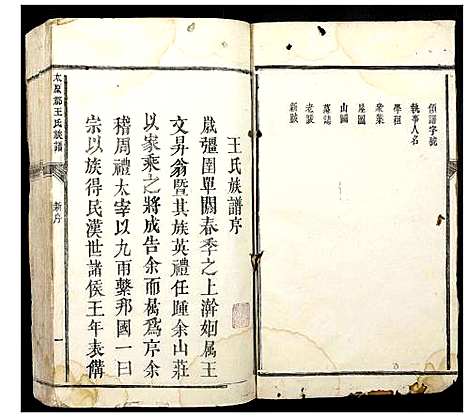 領譜字號
執事人名
學租
衆業
屋圖
山圖
墓誌
老跋
新跋
王氏族譜序
歲彊圉單閼春季之上澣廻属王
文昇翁暨其族英禮任踵余山莊
以家乘之將成告余而屬為序余
稽周禮太宰以九兩繫邦國一曰
宗以族得民漢世諸侯王年表備
太原郡王氏族譜
新序
一